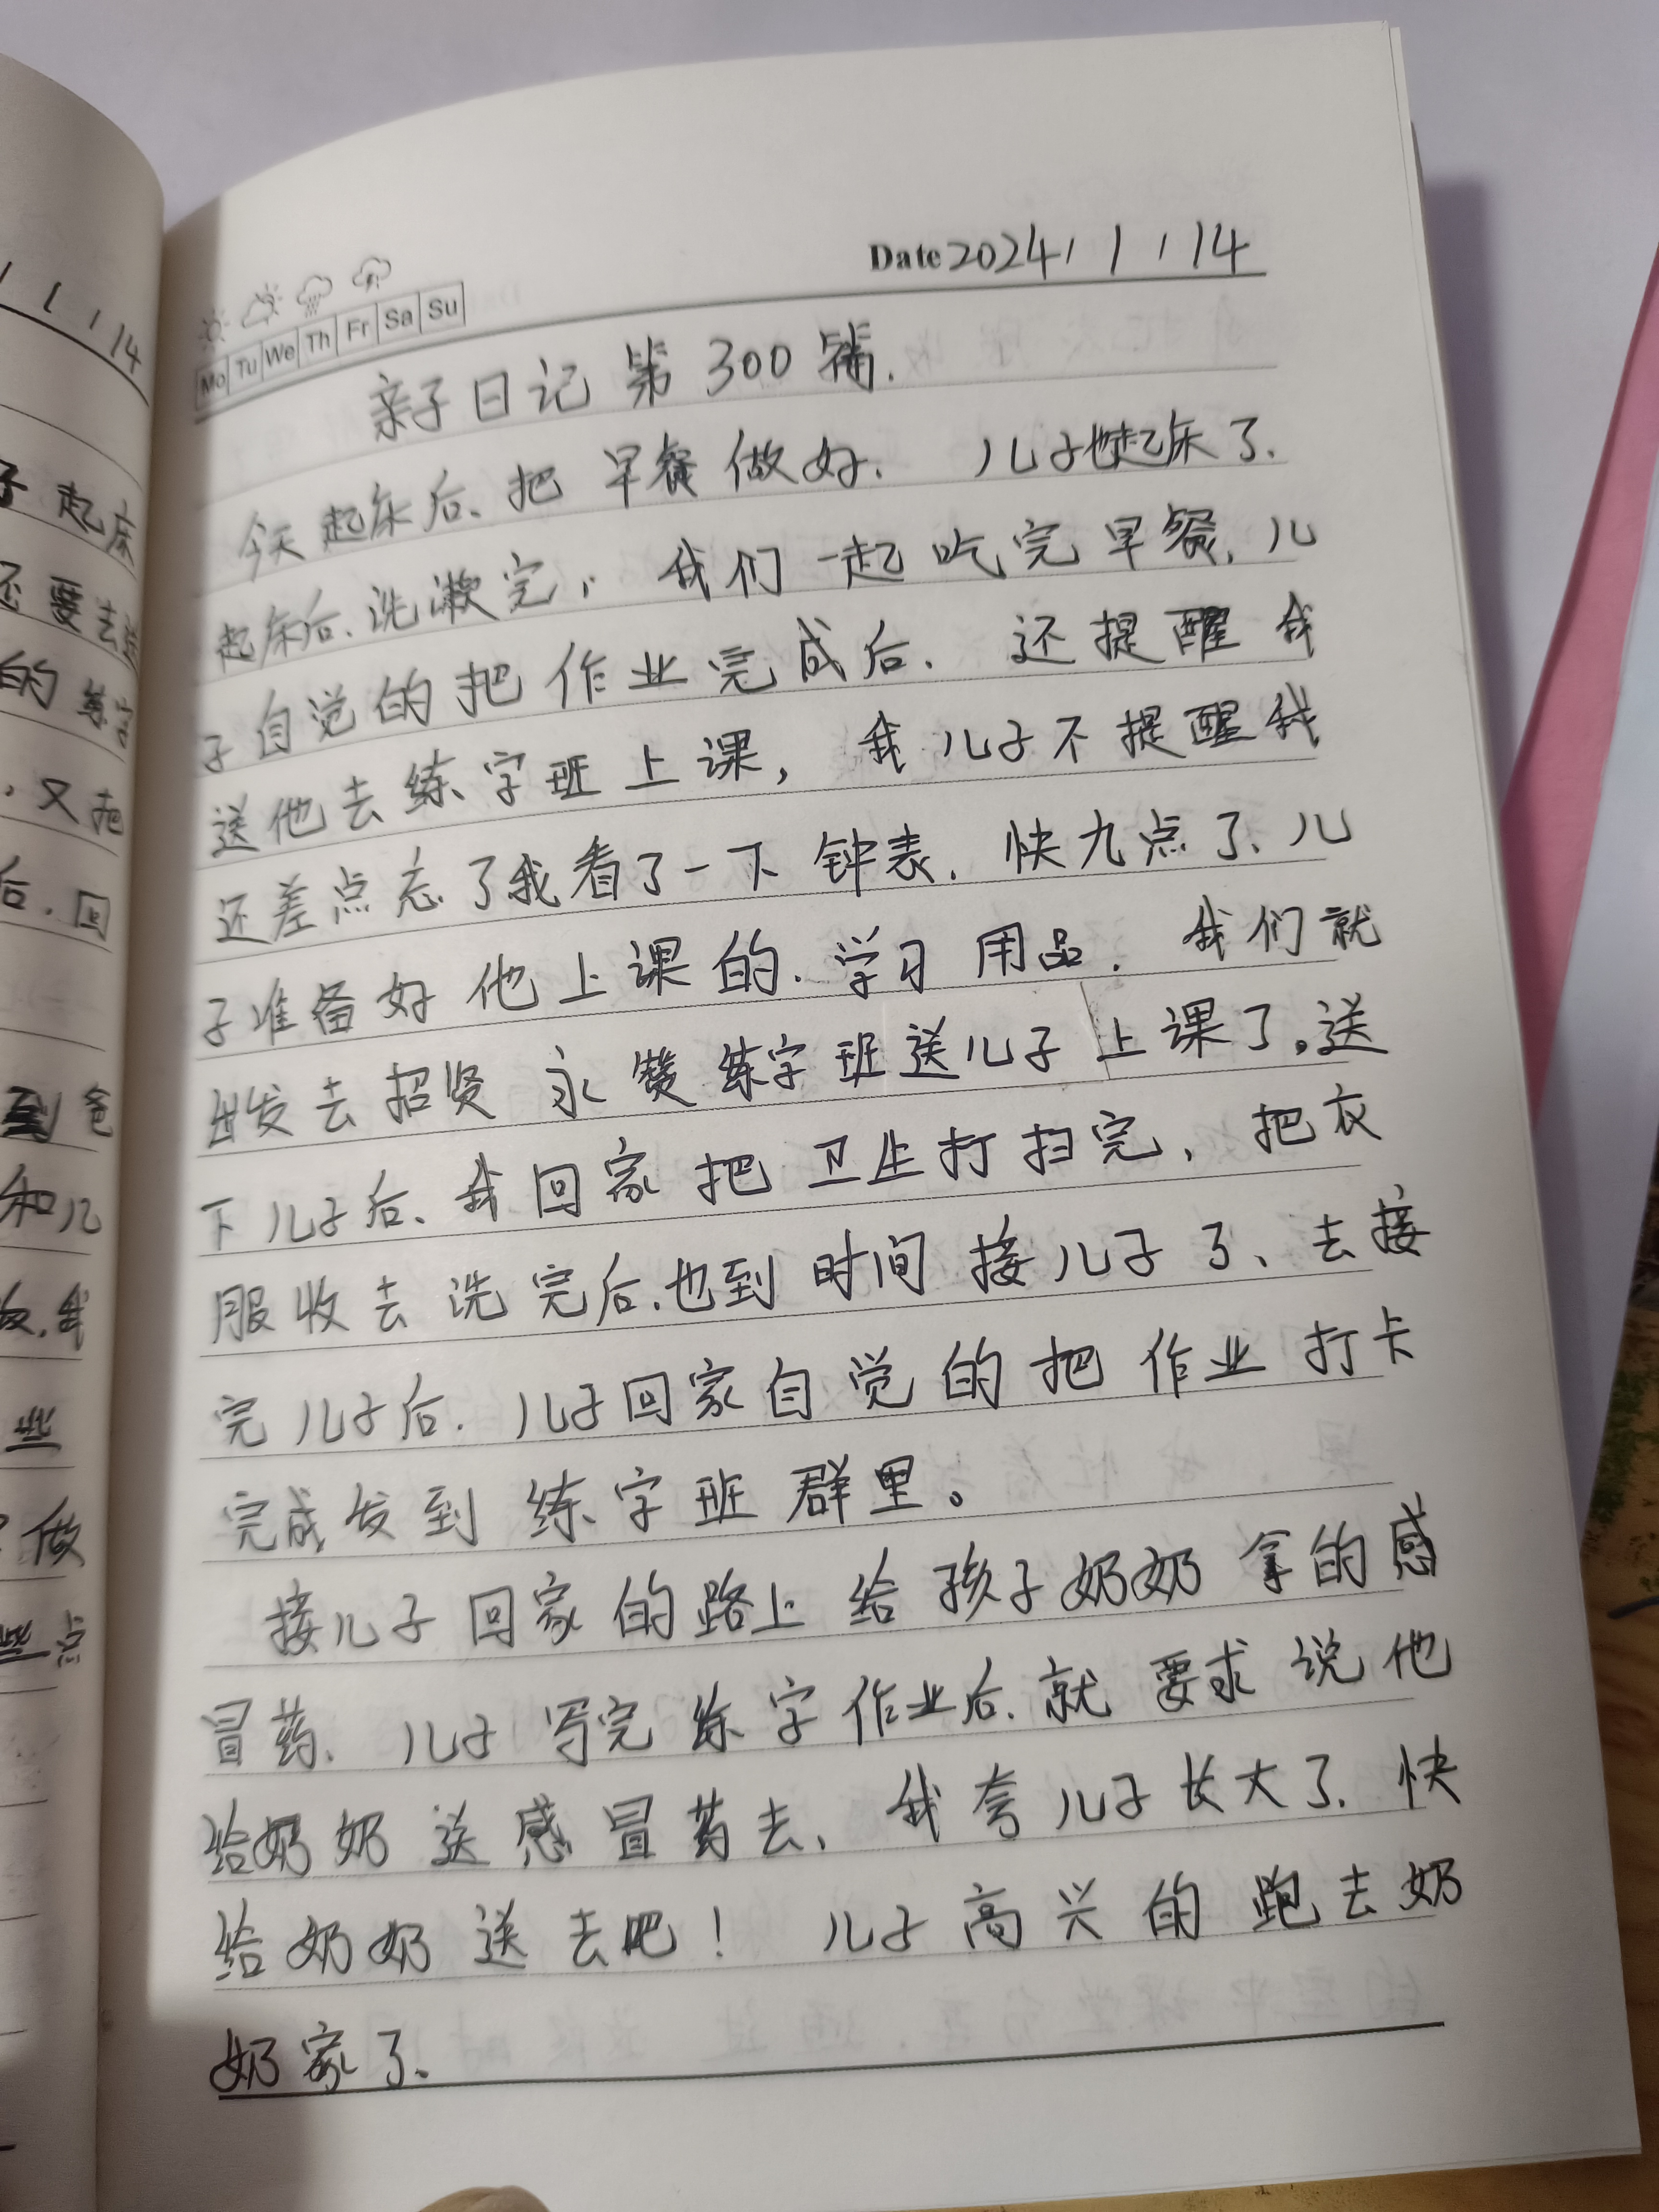 1 1 14
子起床
还要去练
的练字
，又把
后．回
到爸
和儿
饭．我
些
做
些点
Date 2024 / 1 / 14
Mo Tu We Th Fr Sa Su
亲子日记第300篇．
今天起床后、把早餐做好．儿子也起床了．
起床后、洗漱完，我们一起吃完早餐，儿
子自觉的把作业完成后．还提醒我
送他去练字班上课，我儿子不提醒我
还差点忘了我看了一下钟表．快九点了、儿
子准备好他上课的．学习用品．我们就
出发去招贤永赞练字班送儿子上课了。送
下儿子后、我回家把卫生打扫完，把衣
服收去洗完后．也到时间接儿子了、去接
完儿子后．儿子回家自觉的把作业打卡
完成发到练字班群里。
接儿子回家的路上给孩子奶奶拿的感
冒药．儿子写完练字作业后．就要求说他
给奶奶送感冒药去、我夸儿子长大了．快
给奶奶送去吧！儿子高兴的跑去奶
奶家了、